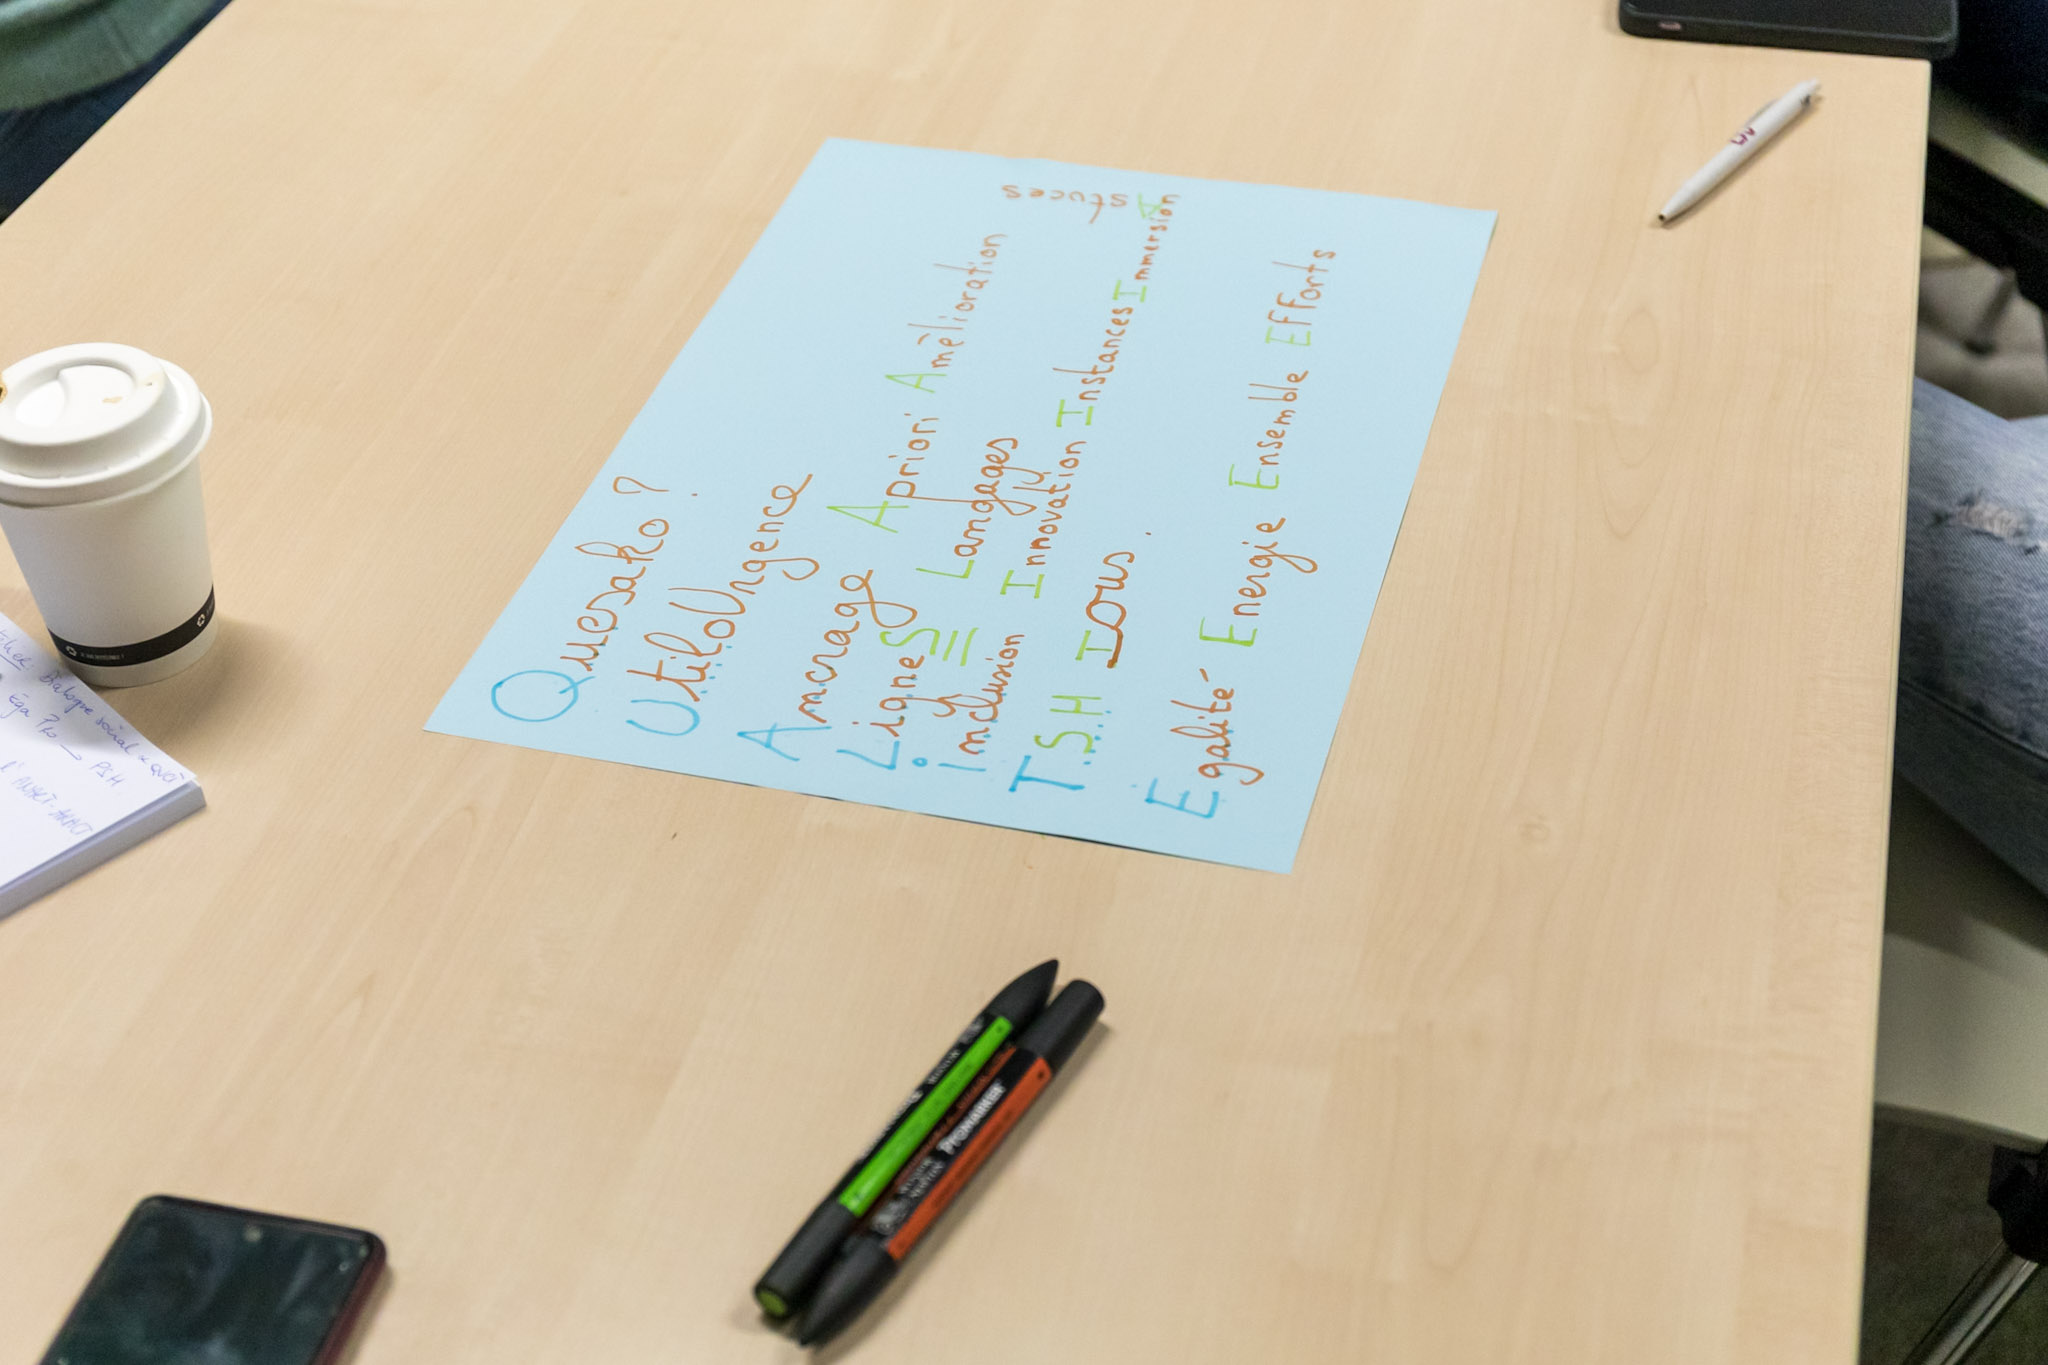 Quesako ?
UtiloUrgence
Ancrage Apriori Amélioration
LigneS Langages
Inclusion Innovation Instances Immersion
Astuces
T.S.H Tous.
Egalité Energie Ensemble Efforts
Dialogue social
Ega Pro → PSH
PROMARKER